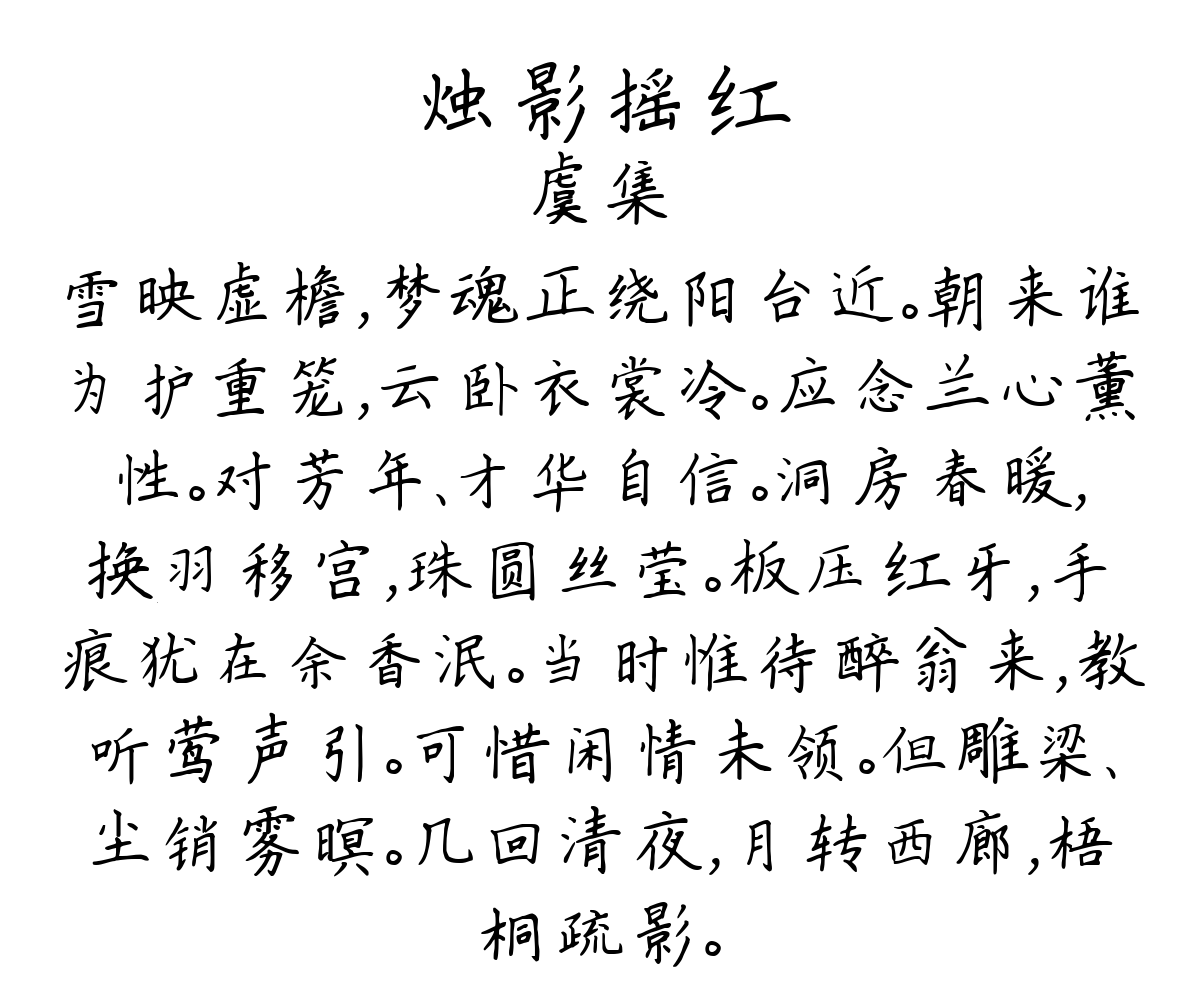 烛影摇红
虞集
雪映虚檐,梦魂正绕阳台近。朝来谁
为护重笼,云卧衣裳冷。应念兰心薰
性。对芳年、才华自信。洞房春暖,
换羽移宫,珠圆丝莹。板压红牙,手
痕犹在余香泯。当时惟待醉翁来,教
听莺声引。可惜闲情未领。但雕梁、
尘销雾暝。几回清夜,月转西廊,梧
桐疏影。